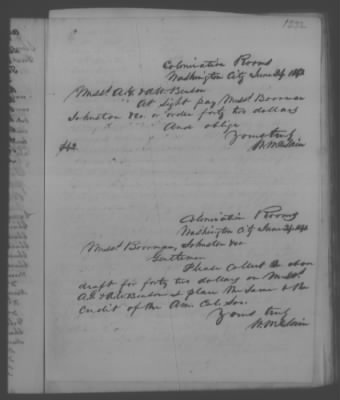 1292
Colonization Rooms
Washington City June 24 184
Messrs A.G. & A.W. Benson
At Sight pay Messrs Boorman
Johnston &co. or order forty two dollars
And oblige
Yours truly
$42. W. McLain
Colonization Rooms
Washington City June 24 184
Messrs Boorman, Johnston &co
Gentlemen
Please Collect the above
draft for forty two dollars on Messrs
A.G. & A.W. Benson & place the same to the
credit of the Am. Col. Soc.
Yours truly
W. McLain